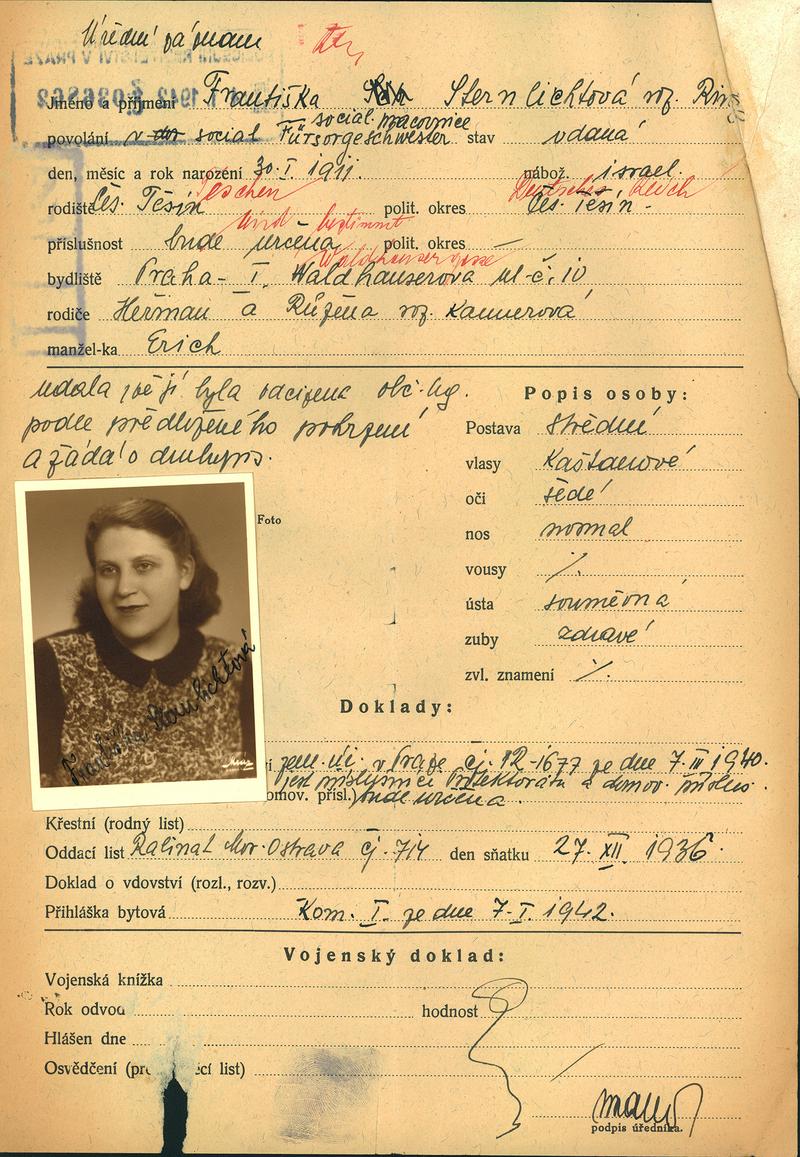 Úřední záznam
Jméno a příjmení Františka Sternlichtová roz.
social. pracovnice
povolání social Fürsorgeschwester stav vdaná
den, měsíc a rok narození 30. I. 1911. nábož. israel.
Teschen Deutsches Reich
rodiště Čes. Těšín polit. okres Čes. Těšín -
wird bestimmt
příslušnost bude určena polit. okres —
Waldhausergasse
bydliště Praha - I. Waldhauserova ul. č. 10
rodiče Heřman a Růžena roz. Kannerová
manžel-ka Erich
udala že jí byla odcizena obč. leg.
podle předloženého potvrzení
a žádá o druhopis.
Popis osoby:
Postava střední
vlasy Kaštanové
oči šedé
nos normal
vousy ⁒
ústa souměrná
zuby zdravé
zvl. znamení ⁒
Foto
Františka Sternlichtová
Doklady:
zem. úř. v Praze čj. 12-1677 ze dne 7. III 1940.
jest příslušnicí Protektorátu a domov. přísluš.
omov. přísl.) bude určena.
Křestní (rodný list)
Oddací list Rabinat Mor. Ostrava čj. 714 den sňatku 27. XII. 1936.
Doklad o vdovství (rozl., rozv.)
Přihláška bytová Kom. I. ze dne 7. I. 1942.
Vojenský doklad:
Vojenská knížka
Rok odvodu hodnost
Hlášen dne
Osvědčení
podpis úředníka.